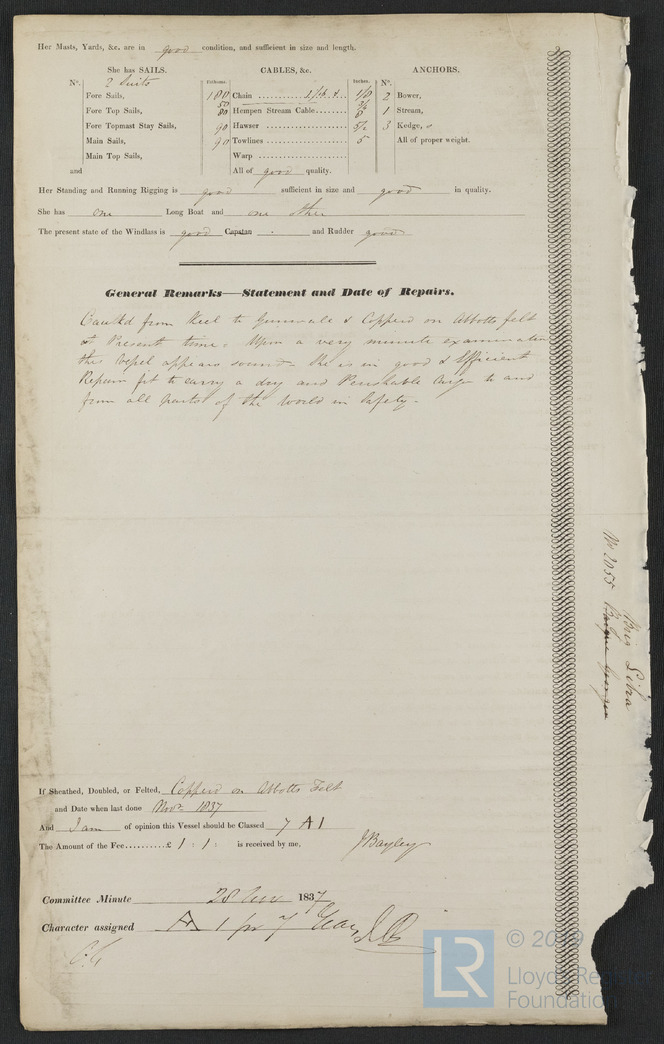 Her Masts, Yards, &c. are in good condition, and sufficient in size and length.
She has SAILS. CABLES, &c. ANCHORS.
Nº. 2 Suits Fathoms. Inches. Nº.
Fore Sails, 180 Chain 1/8 2 Bower,
Fore Top Sails, 80 Hempen Stream Cable 8 1 Stream,
Fore Topmast Stay Sails, 90 Hawser 5½ 3 Kedge,
Main Sails, 90 Towlines 5 All of proper weight.
Main Top Sails, Warp
and All of good quality.
Her Standing and Running Rigging is good sufficient in size and good in quality.
She has one Long Boat and one other
The present state of the Windlass is good Capstan - and Rudder good
General Remarks—Statement and Date of Repairs.
Caulkd from Keel to Gunwale & Copperd on Abbotts felt
at Present time. Upon a very minute examination
this Vessel appears sound. She is in good & Efficient
Repair fit to carry a dry and Perishable Cargo to and
from all parts of the World in Safety.
If Sheathed, Doubled, or Felted, Copperd on Abbotts Felt
and Date when last done Novr 1837
And I am of opinion this Vessel should be Classed 7 A1
The Amount of the Fee £ 1 : 1 : is received by me, J Bayley
Committee Minute 28 Nov 1837
Character assigned A 1 for 7 Years
No 2055 Barque George
Brig Libra
LR
© 2019
Lloyd's Register
Foundation